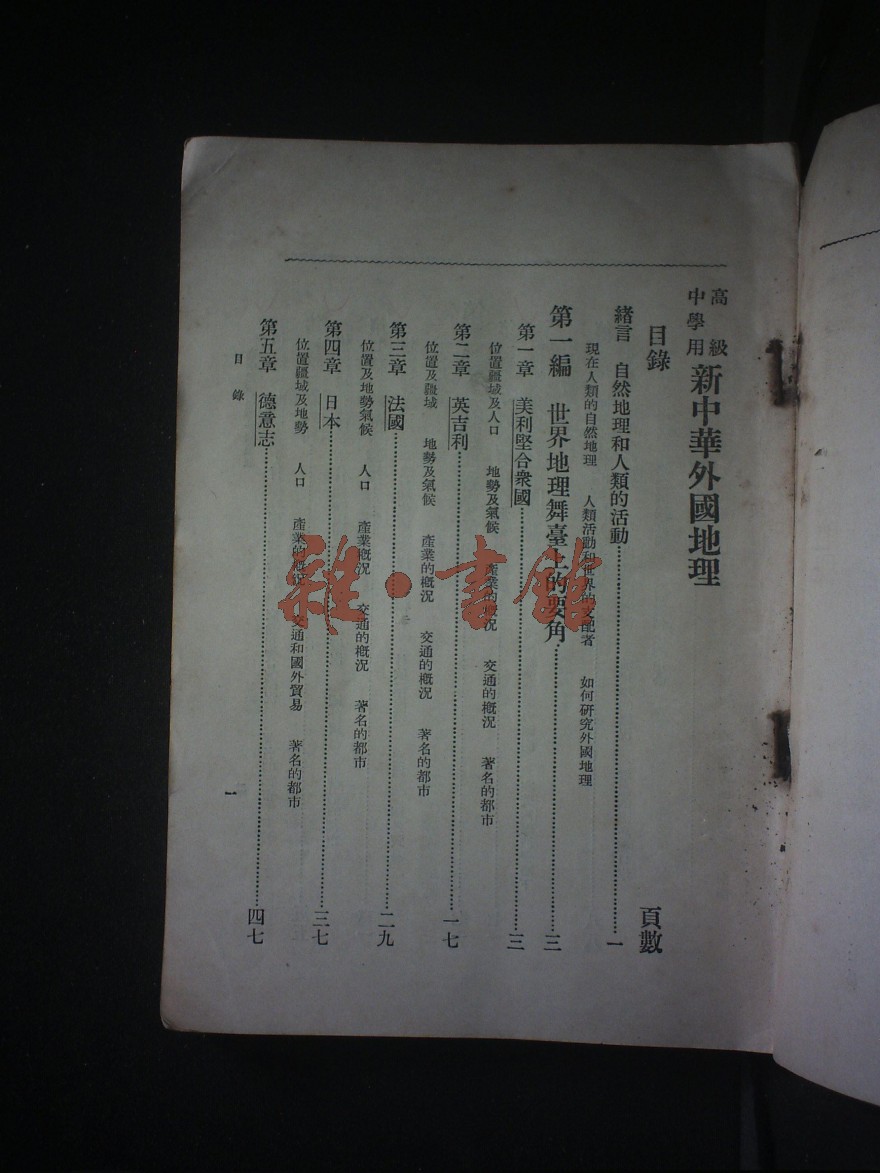 高級中學用 新中華外國地理
目錄 頁數
緒言 自然地理和人類的活動 一
現在人類的自然地理 人類活動和世界的支配者 如何研究外國地理
第一編 世界地理舞臺上的要角 三
第一章 美利堅合衆國 三
位置疆域及人口 地勢及氣候 產業的概況 交通的概況 著名的都市
第二章 英吉利 一七
位置及疆域 地勢及氣候 產業的概況 交通的概況 著名的都市
第三章 法國 二九
位置及地勢氣候 人口 產業概況 交通的概況 著名的都市
第四章 日本 三七
位置疆域及地勢 人口 產業的概況 交通和國外貿易 著名的都市
第五章 德意志 四七
目錄 一
雜·書館